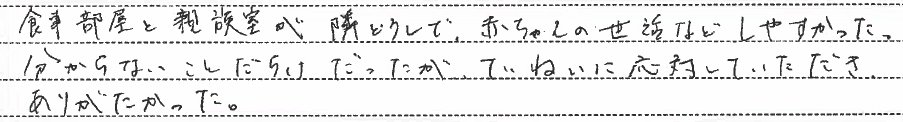 食事部屋と親族室が隣どうしで、赤ちゃんの世話などしやすかった。
分からないことだらけだったが、ていねいに応対していただき、
ありがたかった。